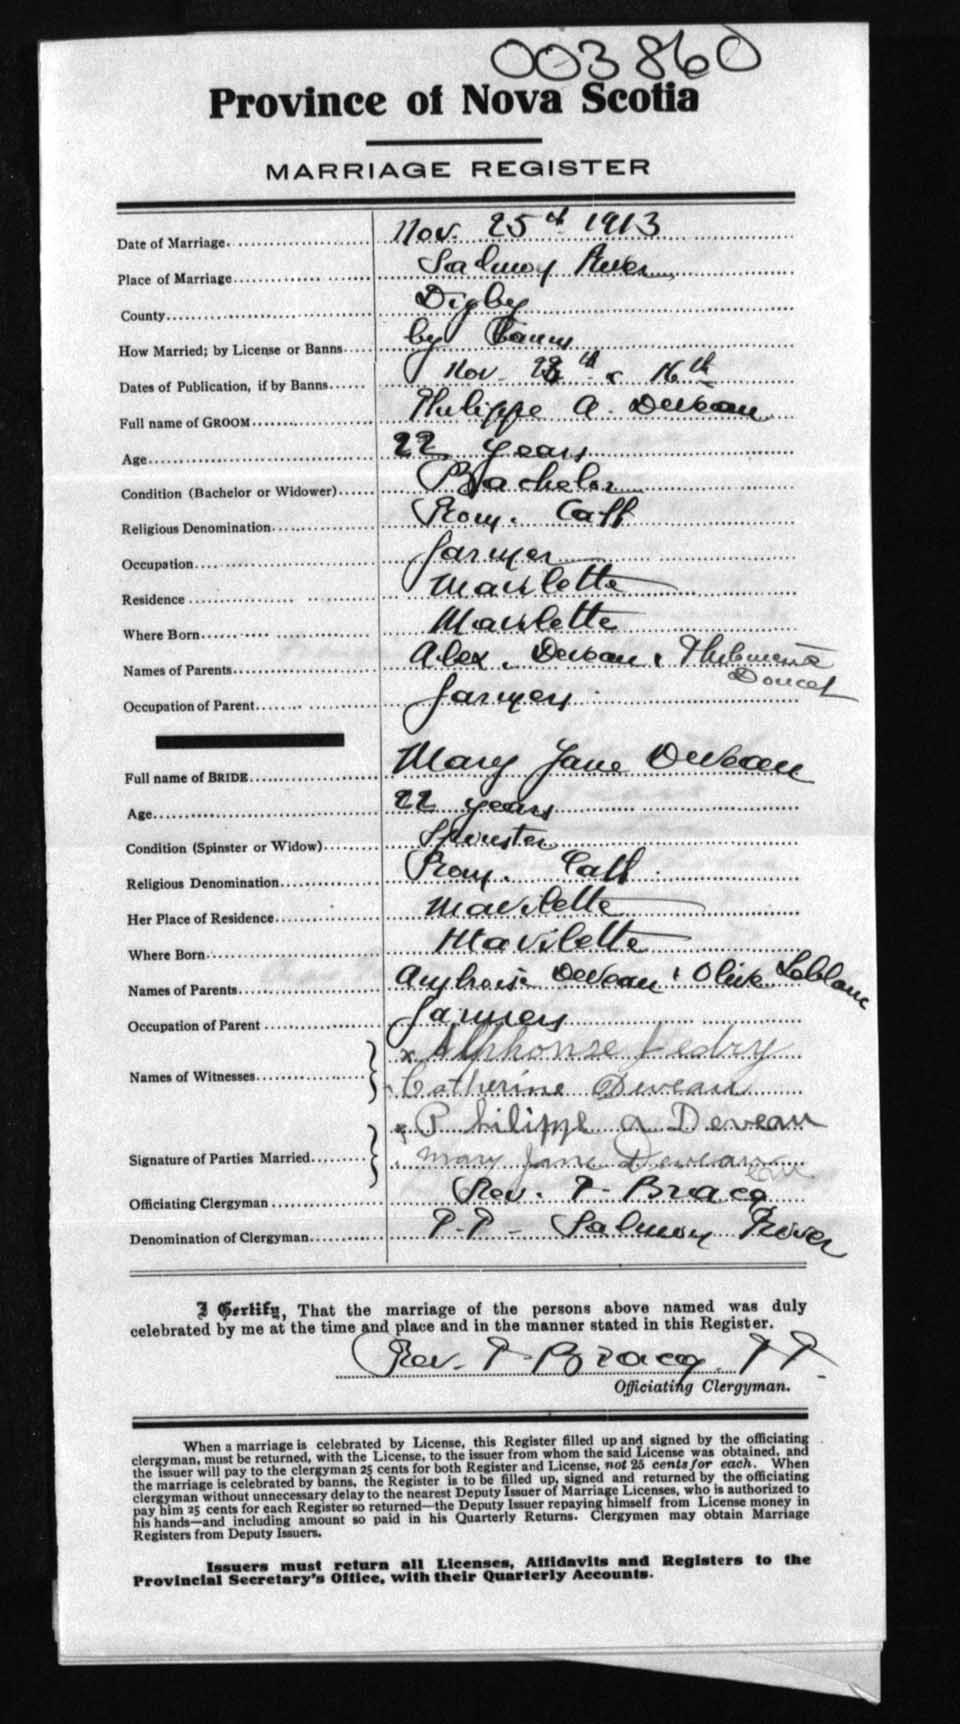 003860
Province of Nova Scotia
MARRIAGE REGISTER
Date of Marriage Nov. 25th 1913
Place of Marriage Salmon River
County Digby
How Married; by License or Banns by Banns
Dates of Publication, if by Banns Nov. & 16th
Full name of GROOM Philippe A. Deveau
Age 22 years
Condition (Bachelor or Widower) Bachelor
Religious Denomination Rom. Cath
Occupation farmer
Residence Mavilette
Where Born Mavilette
Names of Parents Alex. Deveau & Philomene Doucet
Occupation of Parent farmers
Full name of BRIDE Mary Jane Deveau
Age 22 years
Condition (Spinster or Widow) Spinster
Religious Denomination Rom. Cath
Her Place of Residence Mavilette
Where Born Mavilette
Names of Parents Ambroise Deveau & Olive Leblanc
Occupation of Parent farmers
Names of Witnesses x Alphonse Jedry
Catherine Deveau
Signature of Parties Married x Philippe a Deveau
Mary Jane Deveau
Officiating Clergyman Rev. P. Bracq
Denomination of Clergyman P.P - Salmon River
I Certify, That the marriage of the persons above named was duly
celebrated by me at the time and place and in the manner stated in this Register.
Rev. P. Bracq P P
Officiating Clergyman.
When a marriage is celebrated by License, this Register filled up and signed by the officiating
clergyman, must be returned, with the License, to the issuer from whom the said License was obtained, and
the issuer will pay to the clergyman 25 cents for both Register and License, not 25 cents for each. When
the marriage is celebrated by banns, the Register is to be filled up, signed and returned by the officiating
clergyman without unnecessary delay to the nearest Deputy Issuer of Marriage Licenses, who is authorized to
pay him 25 cents for each Register so returned—the Deputy Issuer repaying himself from License money in
his hands—and including amount so paid in his Quarterly Returns. Clergymen may obtain Marriage
Registers from Deputy Issuers.
Issuers must return all Licenses, Affidavits and Registers to the
Provincial Secretary's Office, with their Quarterly Accounts.